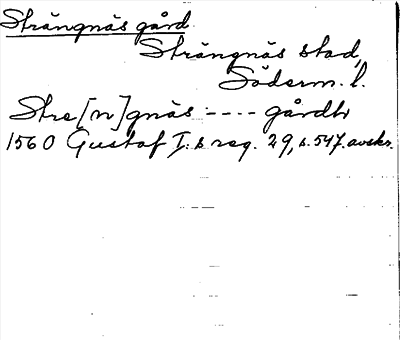 Strängnäs gård.
Strängnäs stad,
Söderm. l.
Stre[n]gnäs ---- gårdh
1560 Gustaf I:s reg. 29, s. 547. avskr.